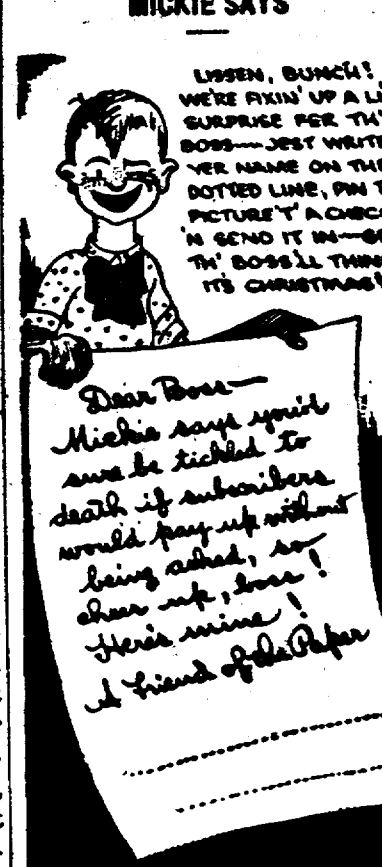 MICKIE SAYS
LISSEN, BUNCH!
WE'RE FIXIN' UP A
SURPRISE FER TH'
BOSS — JEST WRITE
YER NAME ON THE
DOTTED LINE, PIN
PICTURE 'T' A
'N SEND IT IN —
TH' BOSS'LL THINK
IT'S CHRISTMAS!
Dear Boss—
Mickie says you'd
sure be tickled to
death if subscribers
would pay up without
being asked, so
cheer up, boss!
Here's mine!
A Friend of the Paper